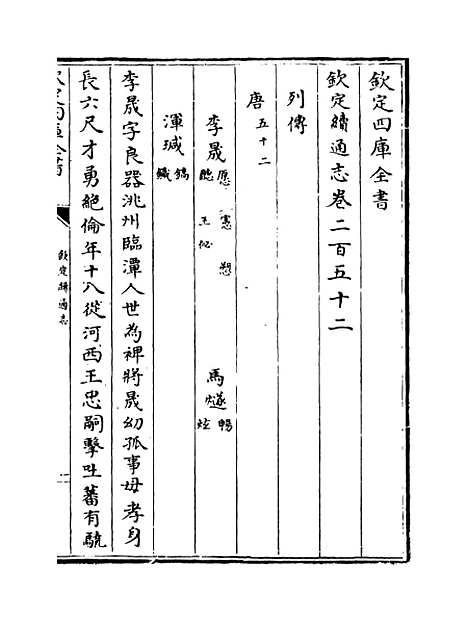 欽定四庫全書
欽定續通志卷二百五十二
列傳
唐五十二
李晟 愿 憲 愬 聽 王佖 馬燧 暢 炫
渾瑊 鎬 鐬
李晟字良器洮州臨潭人世為裨將晟幼孤事母孝身
長六尺才勇絶倫年十八從河西王忠嗣擊吐蕃有驍
欽定續通志